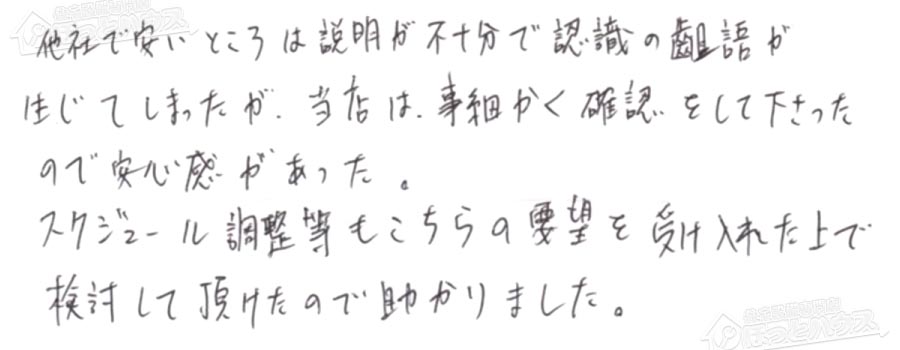 他社で安いところは説明が不十分で認識の齟語が
生じてしまったが、当店は、事細かく確認をして下さった
ので安心感があった。
スケジュール調整等もこちらの要望を受け入れた上で
検討して頂けたので助かりました。
ほっとハウス